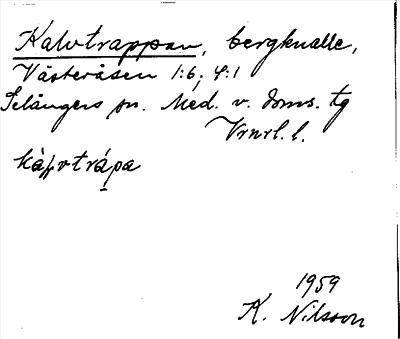 Kalvtrappan, bergknalle,
Västeråsen 1:6, 4:1
Selångers sn. Med. v. doms. tg
Vrnrl. l.
kàḷvtrápa
1959
K. Nilsson